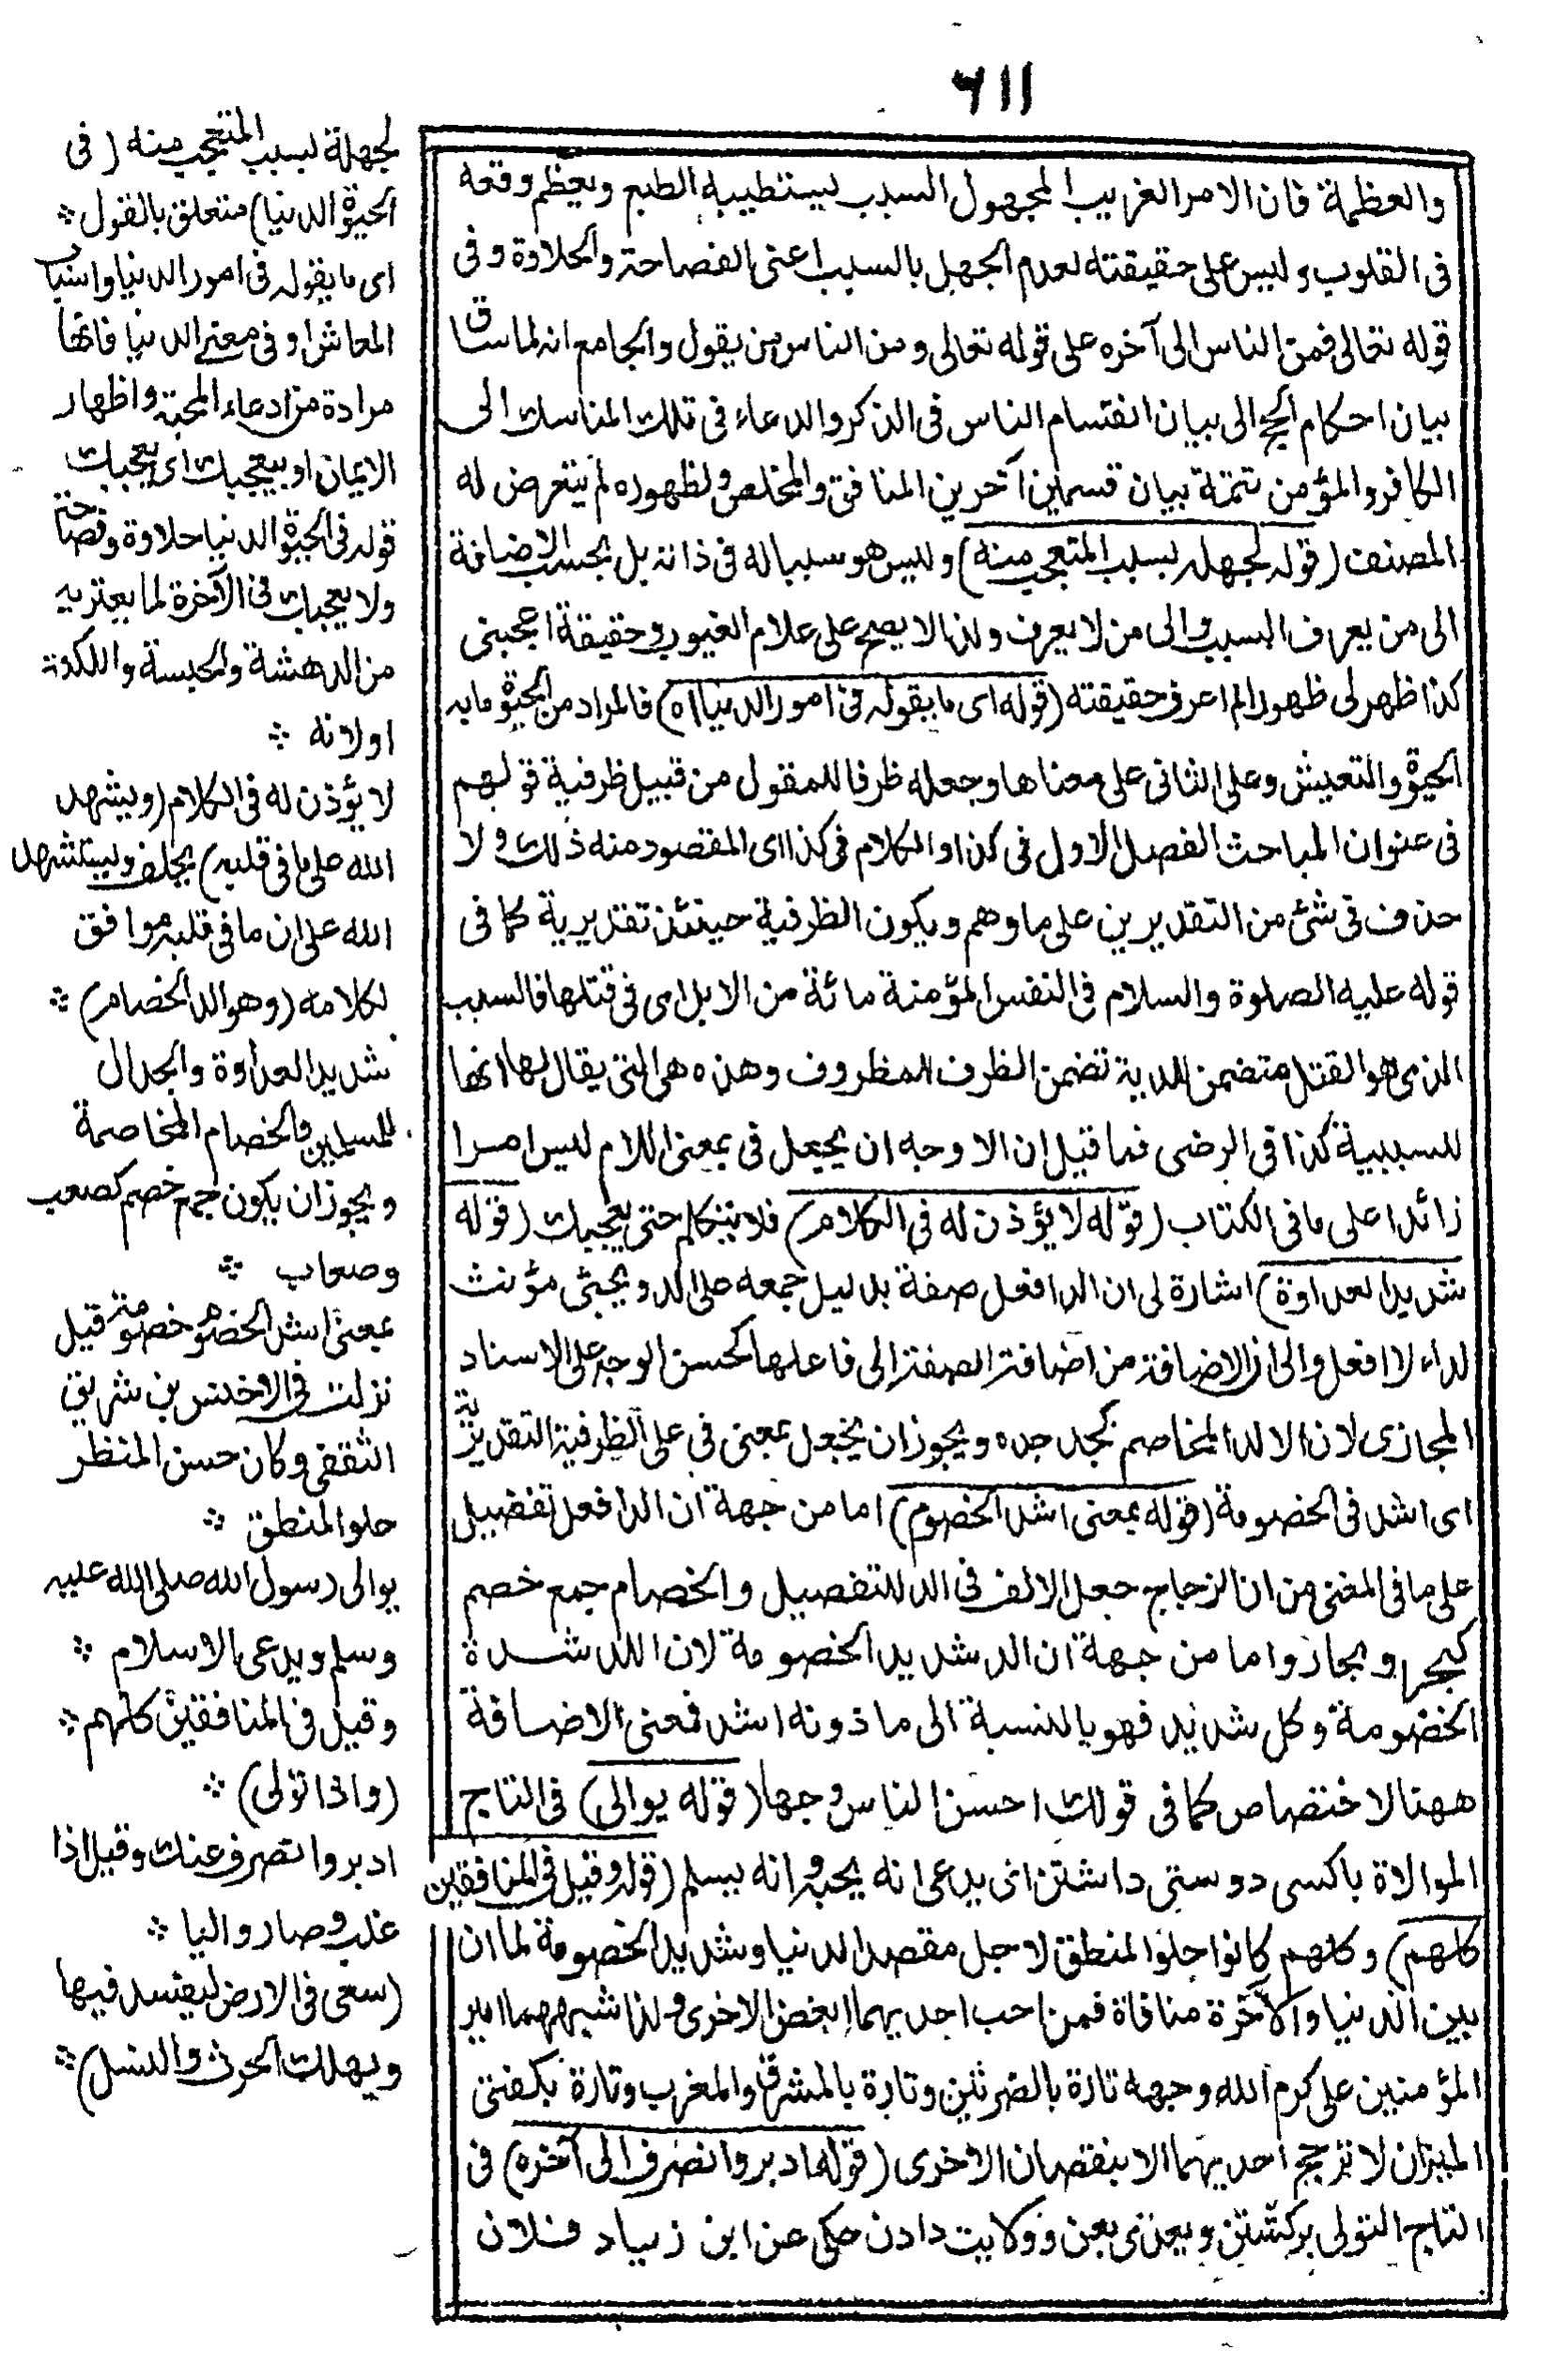 ٦١١
والعظمة فان الامر الغريب المجهول السبب يستطيبه الطبع ويعظم وقعه
فى القلوب وليس على حقيقته لعدم الجهل بالسبب اعنى الفصاحة والحلاوة وفى
قوله تعالى فمن الناس الى آخره على قوله تعالى ومن الناس من يقول والجامع انه لما ساق
بيان احكام الحج الى بيان انقسام الناس فى الذكر والدعاء فى تلك المناسك الى
الكافر والمؤمن تتمة بيان قسمين آخرين المنافق والمخلص ولظهوره لم يتعرض له
المصنف (قوله لجهله بسبب المتعجب منه) وليس هو سببا له فى ذاته بل بحسب الاضافة
الى من يعرف السبب والى من لا يعرف ولذا لا يصح على علام الغيوب وحقيقة اعجبنى
كذا ظهر لى ظهورا لم اعرف حقيقته (قوله اى ما يقوله فى امور الدنيا اه) فالمراد من الحيوة ما به
الحيوة والتعيش وعلى الثانى على معناها وجعله ظرفا للمقول من قبيل ظرفية قولهم
فى عنوان المباحث الفصل الاول فى كذا والكلام فى كذا اى المقصود منه ذلك ولا
حذف فى شئ من التقديرين على ما وهم ويكون الظرفية حينئذ تقديرية كما فى
قوله عليه الصلوة والسلام فى النفس المؤمنة مائة من الابل اى فى قتلها فالسبب
الذى هو القتل متضمن للدية تضمن الظرف للمظروف وهذه هى التى يقال لها انها
للسببية كذا فى الرضى فما قيل ان الاوجه ان يجعل فى بمعنى اللام ليس امرا
زائدا على ما فى الكتاب (قوله لا يؤذن له فى الكلام) فلا يتكلم حتى يعجبك (قوله
شديد العداوة) اشارة لى ان الد افعل صفة بدليل جمعه على لد ويجئ مؤنث
لداء لا افعل والى ان الاضافة من اضافة الصفة الى فاعلها كحسن الوجه على الاسناد
المجازى لان الالد المخاصم كجد جده ويجوز ان يجعل بمعنى فى على الظرفية التقديرية
اى اشد فى الخصومة (قوله بمعنى اشد الخصوم) اما من جهة ان الد افعل تفضيل
على ما فى المغنى من ان الزجاج جعل الالف فى الد للتفصيل والخصام جمع خصم
كبحر وبحار واما من جهة ان الد شديد الخصومة لان اللد شدة
الخصومة وكل شديد فهو بالنسبة الى ما دونه اشد فمعنى الاضافة
ههنا الاختصاص كما فى قولك احسن الناس وجها (قوله يوالى) فى التاج
الموالاة باكسى دوستى داشتن اى يدعى انه يحبه وانه يسلم (قوله وقيل فى المنافقين
كلهم) وكلهم كانوا حلو المنطق لاجل مقصد الدنيا وشديد الخصومة لما ان
بين الدنيا والآخرة منافاة فمن احب احديهما ابغض الاخرى ولذا شبههما امير
المؤمنين على كرم الله وجهه تارة بالضرتين وتارة بالمشرق والمغرب وتارة بكفتى
الميزان لا ترجح احديهما الا بنقصان الاخرى (قوله ادبر وانصرف الى آخره) فى
التاج التولى بركشتن ويعدى بعن وولايت دادن حكى عن ابن زياد فلان
لجهلة بسبب المتعجب منه (فى
الحيوة الدنيا) متعلق بالقول
اى ما يقوله فى امور الدنيا واسباب
المعاش او فى معنى الدنيا فانها
مرادة من ادعاء المحبة واظهار
الايمان او بيعجبك اى يعجبك
قوله فى الحيوة الدنيا حلاوة وفصاحة
ولا يعجبك فى الآخرة لما يعتريه
من الدهشة والحبسة واللكنة
او لانه
لا يؤذن له فى الكلام (ويشهد
الله على ما فى قلبه) يحلف ويستشهد
الله على ان ما فى قلبه موافق
لكلامه (وهو الد الخصام)
شديد العداوة والجدال
للمسلمين والخصام المخاصمة
ويجوز ان يكون جمع خصم كصعب
وصعاب
بمعنى اشد الخصوم خصومة قيل
نزلت فى الاخنس بن شريق
الثقفى وكان حسن المنظر
حلو المنطق
يوالى رسول الله صلى الله عليه
وسلم ويدعى الاسلام
وقيل فى المنافقين كلهم
(واذا تولى)
ادبر وانصرف عنك وقيل اذا
غلب وصار واليا
(سعى فى الارض ليفسد فيها
ويهلك الحرث والنسل)